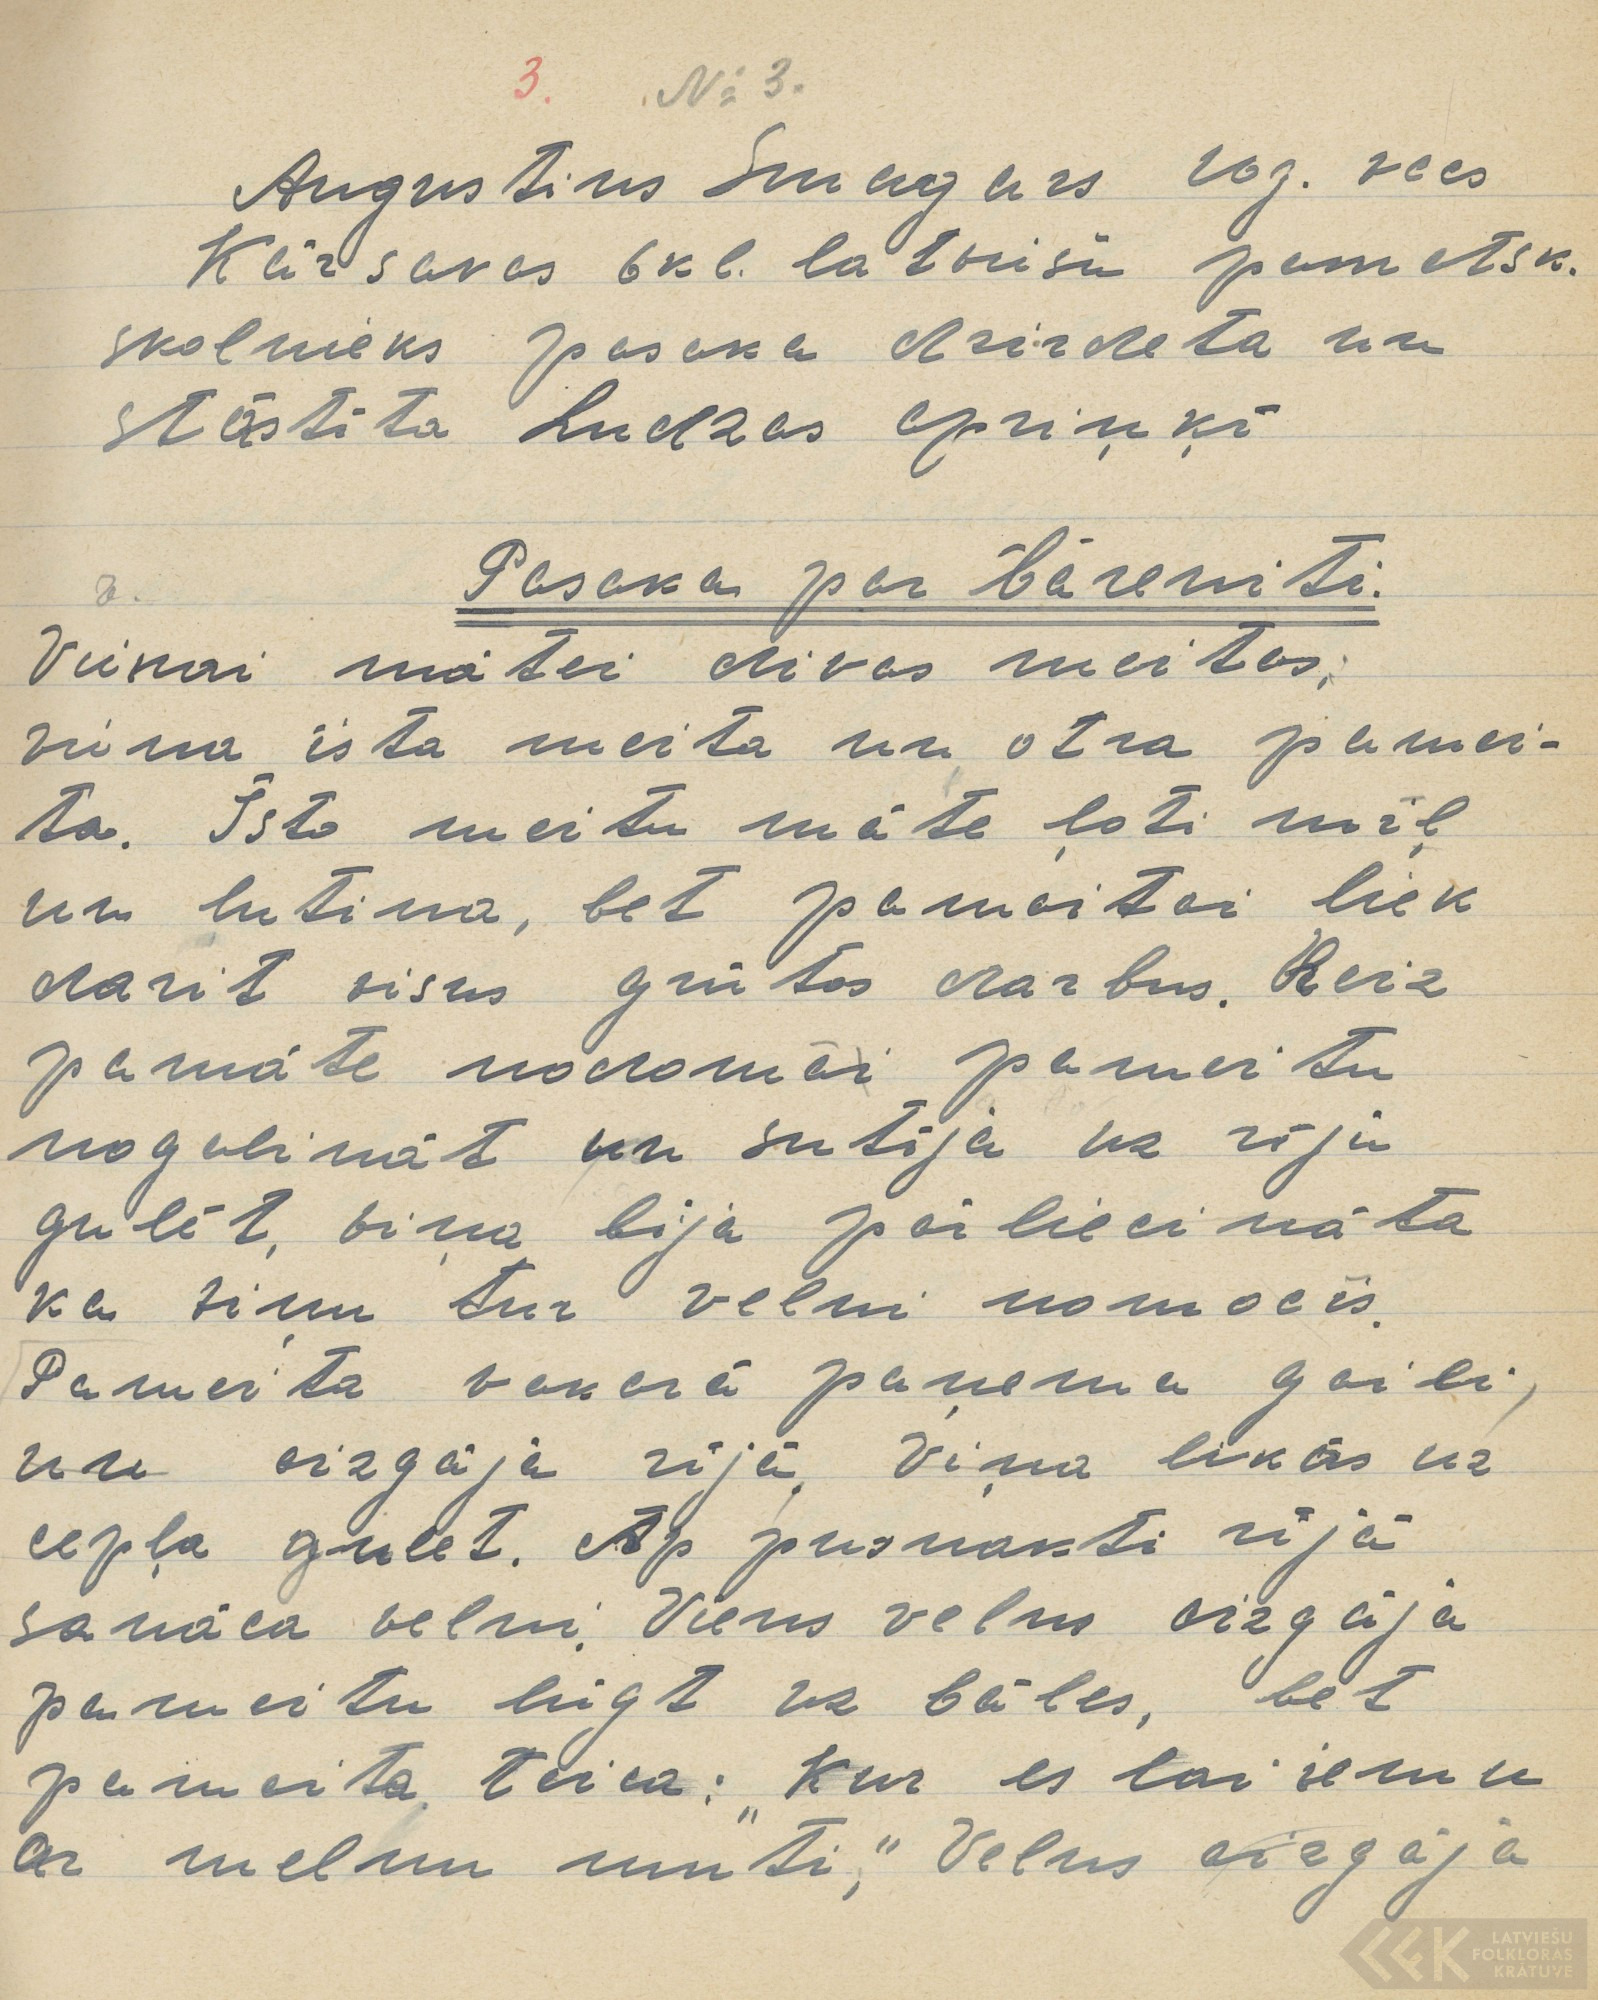 3. № 3.
Augustins Smagars 20g. vecs
Kārsavas 6kl. latviešu pamatsk.
skolnieks pasaka dzirdeta un
stāstīta Ludzas apriņķī
Pasaka par bāreniti.
2.
Vienai mātei divas meitas,
viena īsta meita un otra pamei-
ta. Īsto meitu māte ļoti mīļ
un lutina, bet pameitai liek
darit visus grūtos darbus. Reiz
pamāte nodomāi pameitu
nogalināt un sutīja uz rīju
gulēt, viņa bija pārliecināta
ka viņu tur velni nomocīs.
Pameita vakarā paņema gaili,
un aizgāja rījā. Viņa likās uz
cepļa gulet. Ap pusnakti rījā
sanāca velni. Viens velns aizgāja
pameitu lūgt uz bāles, bet
pameita teica: „Kur es lai iemu
ar melnu muti," Velns aizgāja
LATVIEŠU
FOLKLORAS
KRĀTUVE